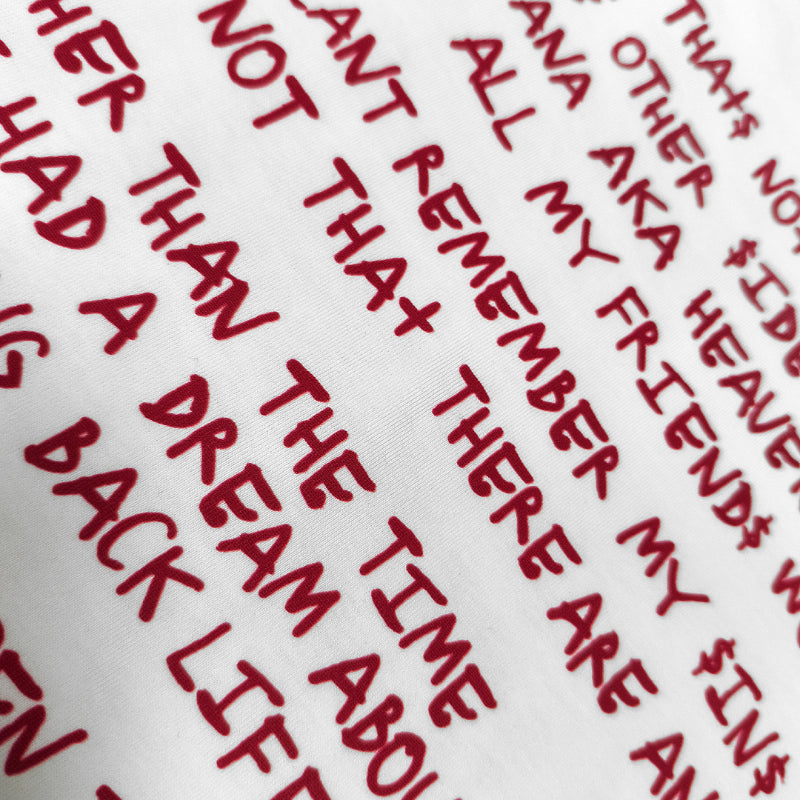 THAt$ NOt
OTHER $IDE
ANA AKA HEAVEN
ALL MY FRIEND$ W
ANT REMEMBER MY $IN$
NOT THAt THERE ARE AN
HER THAN THE TIME
HAD A DREAM ABOU
G BACK LIFE
EN